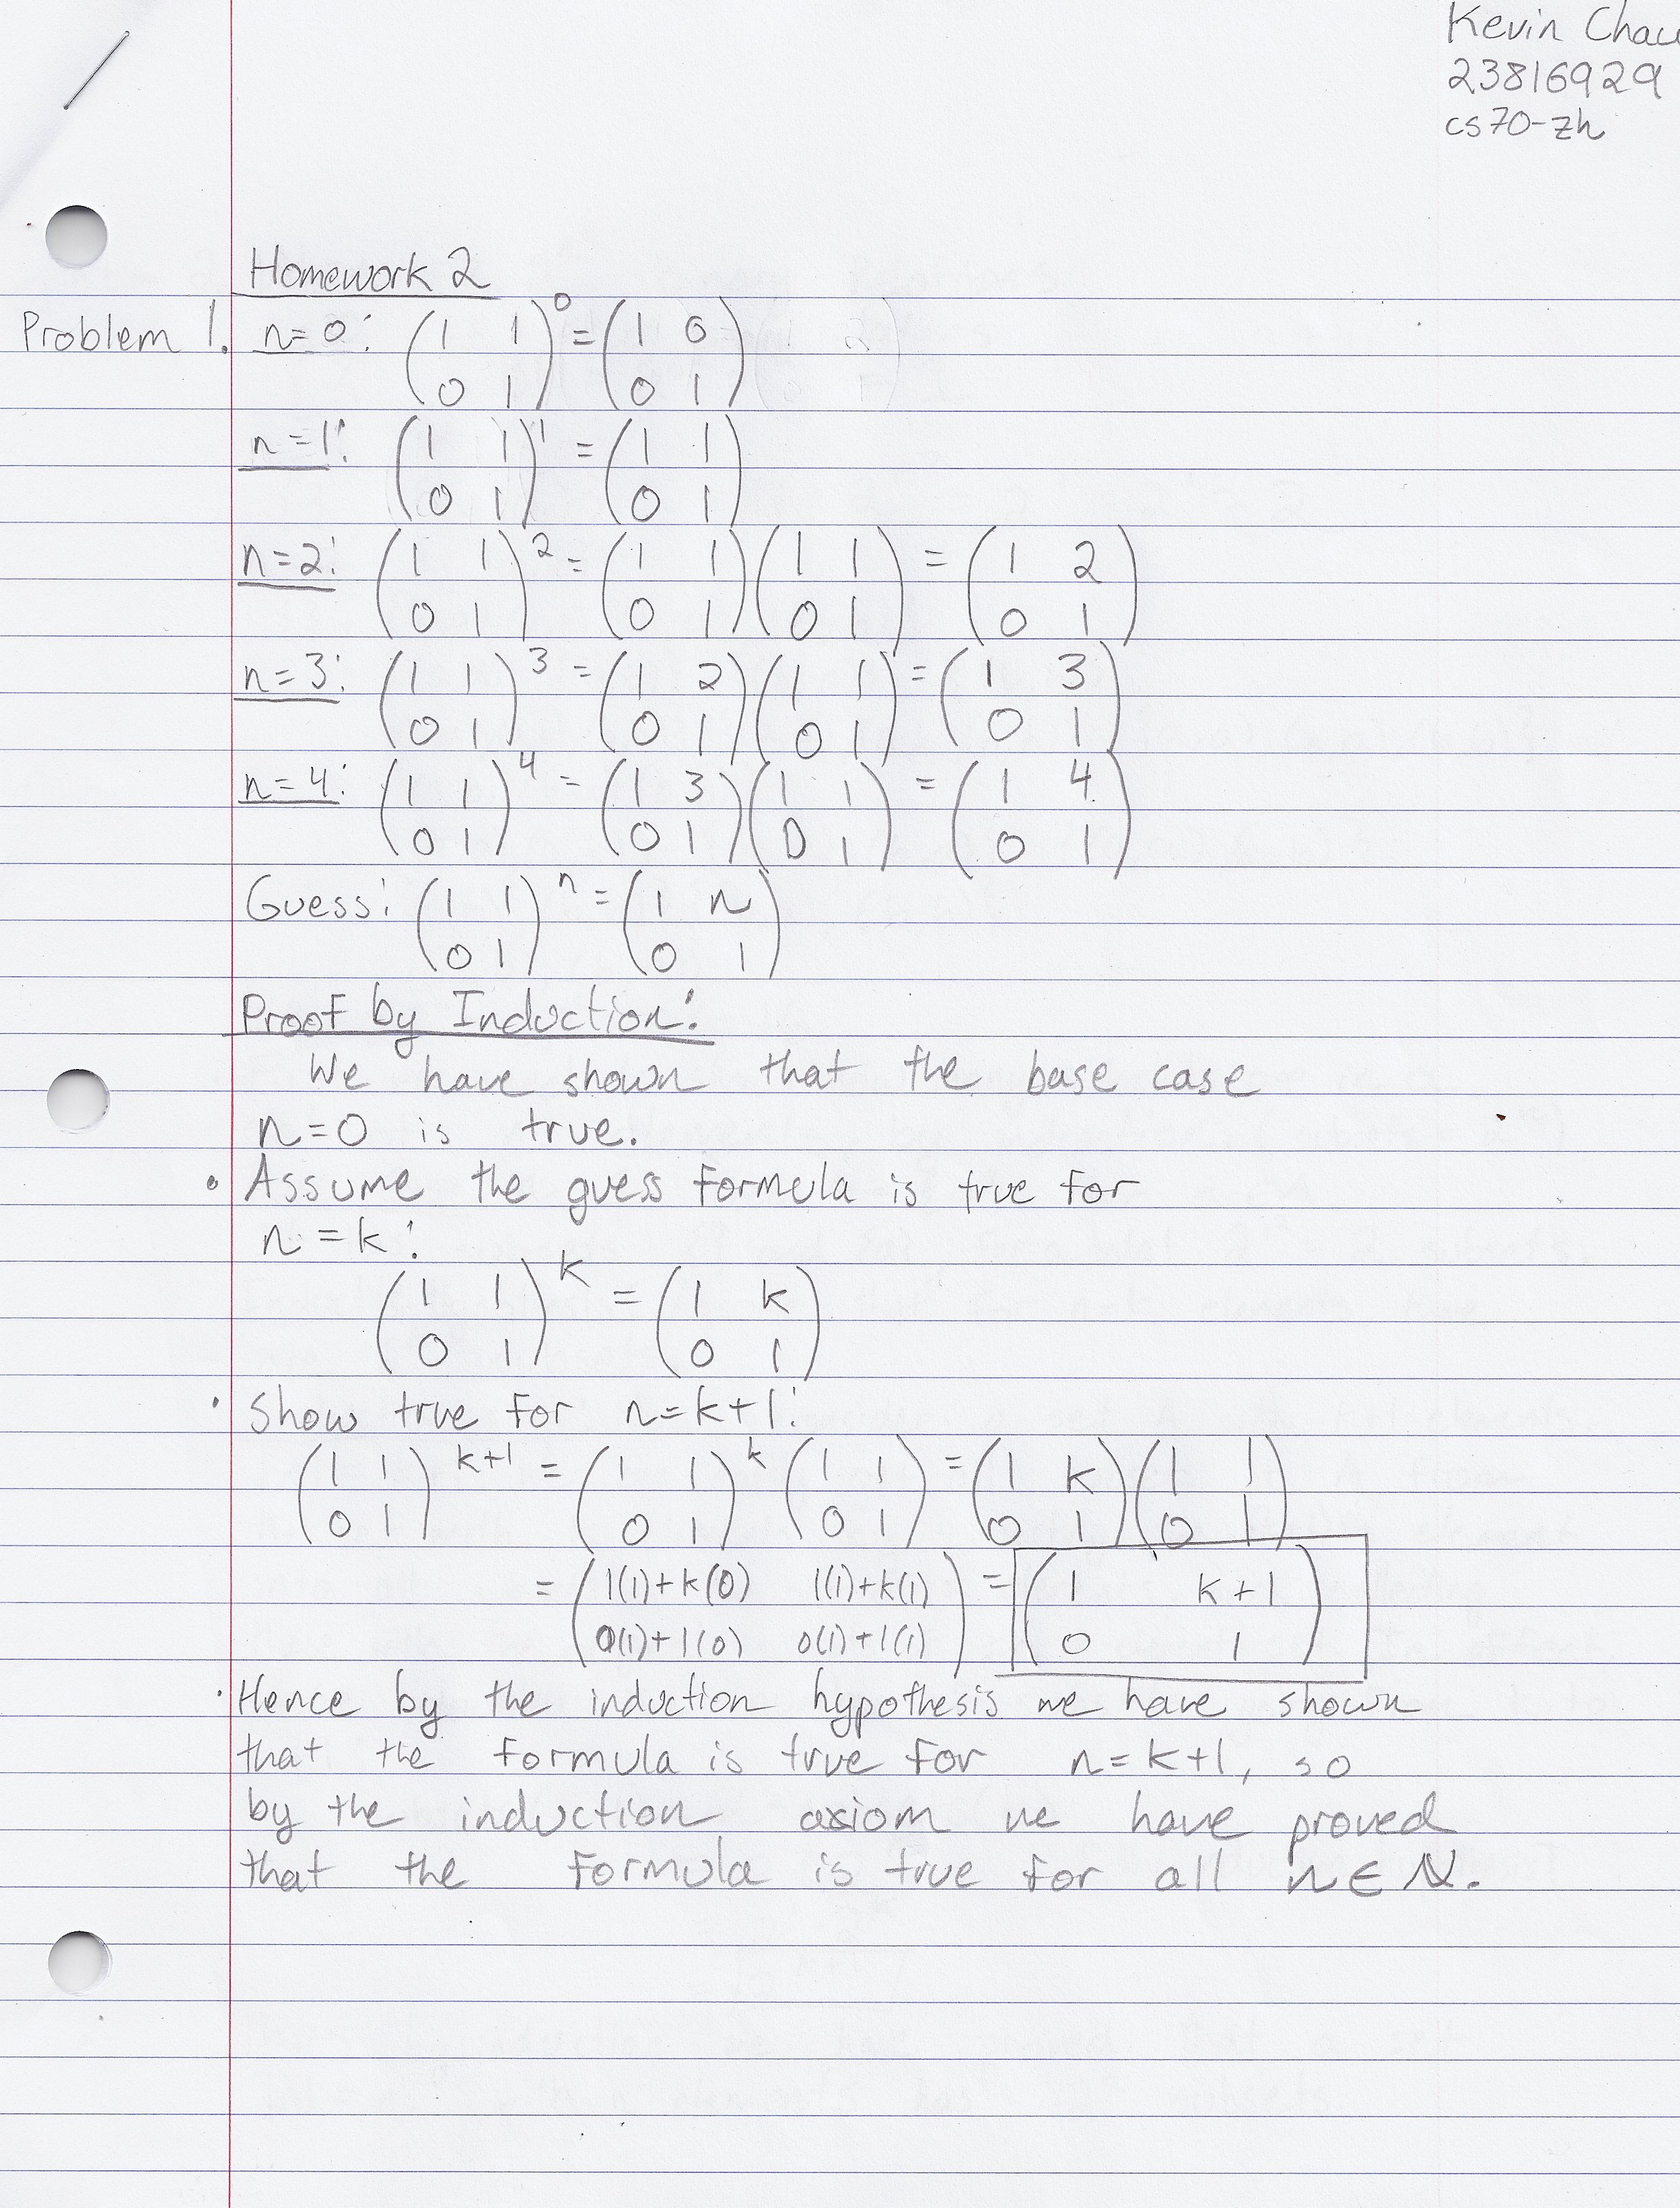 Kevin Chau
23816929
cs70-zh
Homework 2
Problem 1. n=0: (1 1; 0 1)^0 = (1 0; 0 1)
n=1: (1 1; 0 1)^1 = (1 1; 0 1)
n=2: (1 1; 0 1)^2 = (1 1; 0 1)(1 1; 0 1) = (1 2; 0 1)
n=3: (1 1; 0 1)^3 = (1 2; 0 1)(1 1; 0 1) = (1 3; 0 1)
n=4: (1 1; 0 1)^4 = (1 3; 0 1)(1 1; 0 1) = (1 4; 0 1)
Guess: (1 1; 0 1)^n = (1 n; 0 1)
Proof by Induction:
We have shown that the base case
n=0 is true.
• Assume the guess formula is true for
n=k:
(1 1; 0 1)^k = (1 k; 0 1)
· Show true for n=k+1:
(1 1; 0 1)^k+1 = (1 1; 0 1)^k (1 1; 0 1) = (1 k; 0 1)(1 1; 0 1)
= (1(1)+k(0) 1(1)+k(1); 0(1)+1(0) 0(1)+1(1)) = (1 k+1; 0 1)
· Hence by the induction hypothesis we have shown
that the formula is true for n=k+1, so
by the induction axiom we have proved
that the formula is true for all n∈ℕ.